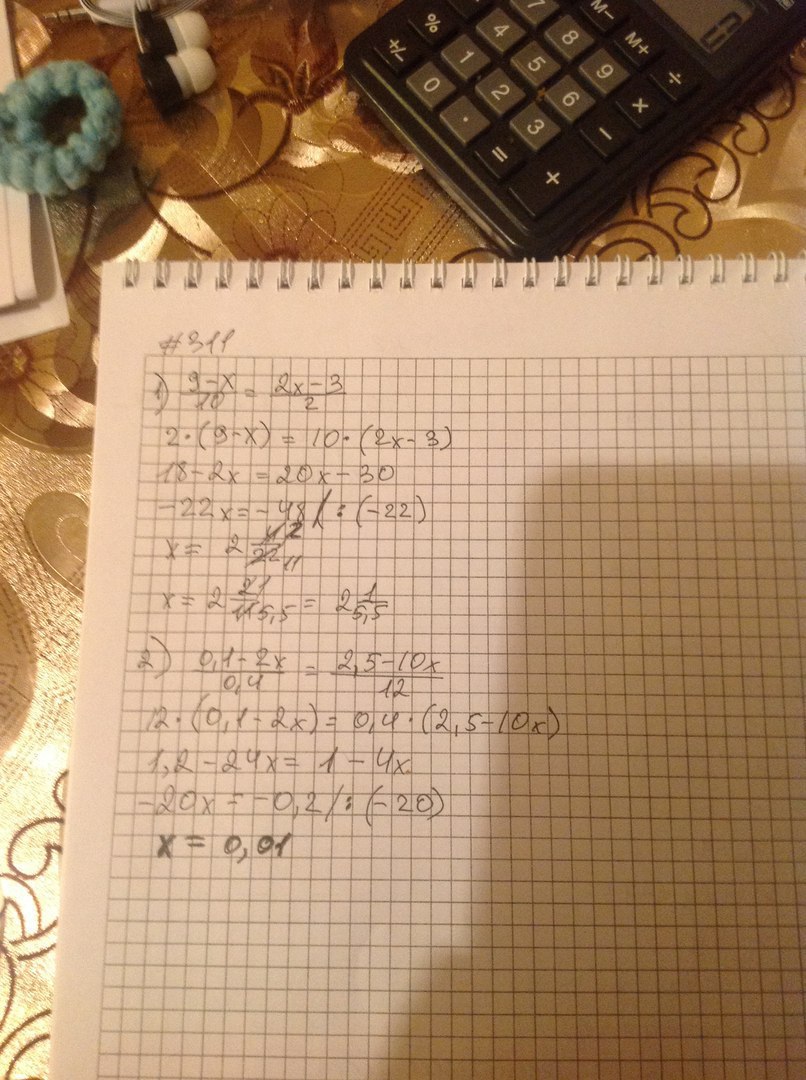 +/- % 7 M- M+
0 1 4 8 ÷
· 2 5 9 ×
= 3 6 −
+
#311
1) (9-x)/10 = (2x-3)/2
2·(9-x) = 10·(2x-3)
18-2x = 20x-30
-22x = -48 /:(-22)
x = 2 4/22 2 11
x = 2 2/11 1 5,5 = 2 1/5,5
2) (0,1-2x)/0,4 = (2,5-10x)/12
12·(0,1-2x) = 0,4·(2,5-10x)
1,2-24x = 1-4x
-20x = -0,2 /:(-20)
x = 0,01